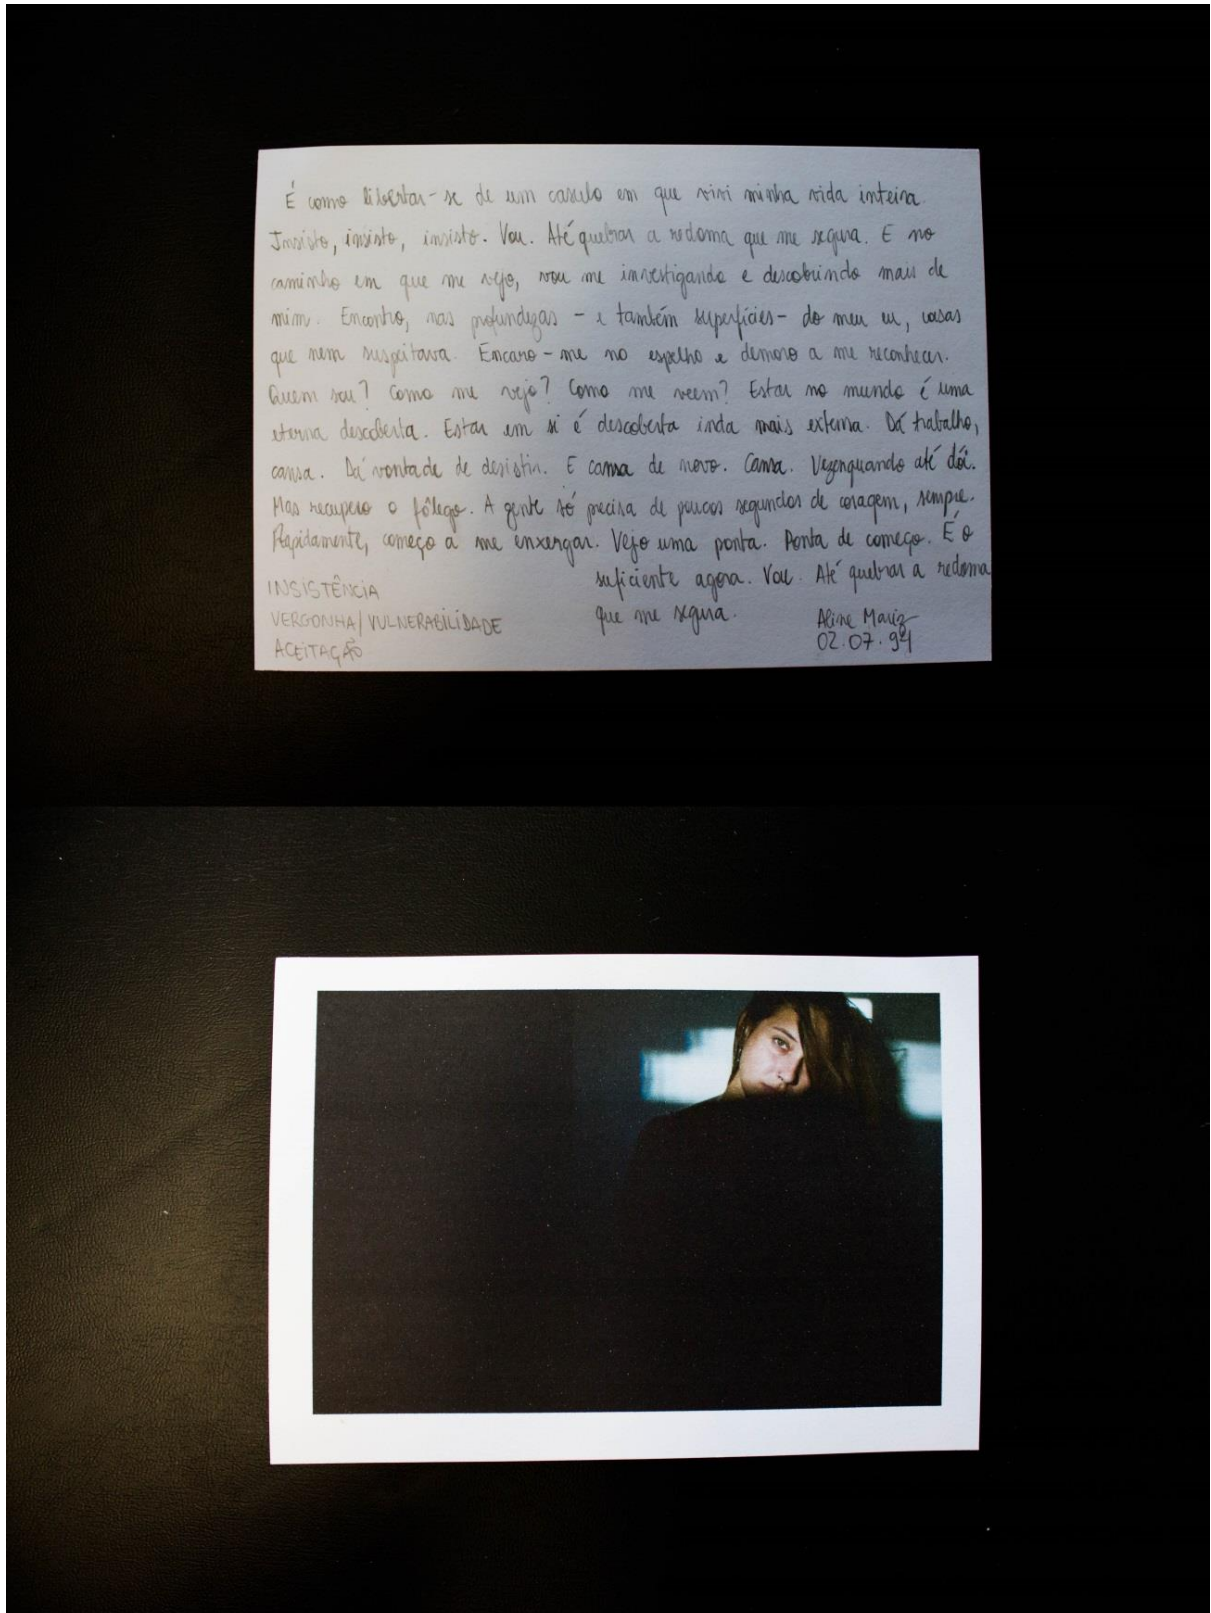 É como libertar-se de um casulo em que vivi minha vida inteira.
Insisto, insisto, insisto. Vou. Até quebrar a redoma que me segura. E no
caminho em que me vejo, vou me investigando e descobrindo mais de
mim. Encontro, nas profundezas - e também superfícies - do meu eu, coisas
que nem suspeitava. Encaro-me no espelho e demoro a me reconhecer.
Quem sou? Como me vejo? Como me veem? Estar no mundo é uma
eterna descoberta. Estar em si é descoberta inda mais externa. Dá trabalho,
cansa. Dá vontade de desistir. E cansa de novo. Cansa. Vezenquando até dói.
Mas recupero o fôlego. A gente só precisa de poucos segundos de coragem, sempre.
Rapidamente, começo a me enxergar. Vejo uma ponta. Ponta de começo. É o
suficiente agora. Vou. Até quebrar a redoma
que me segura.
INSISTÊNCIA
VERGONHA/VULNERABILIDADE
ACEITAÇÃO
Aline Mariz
02.07.94